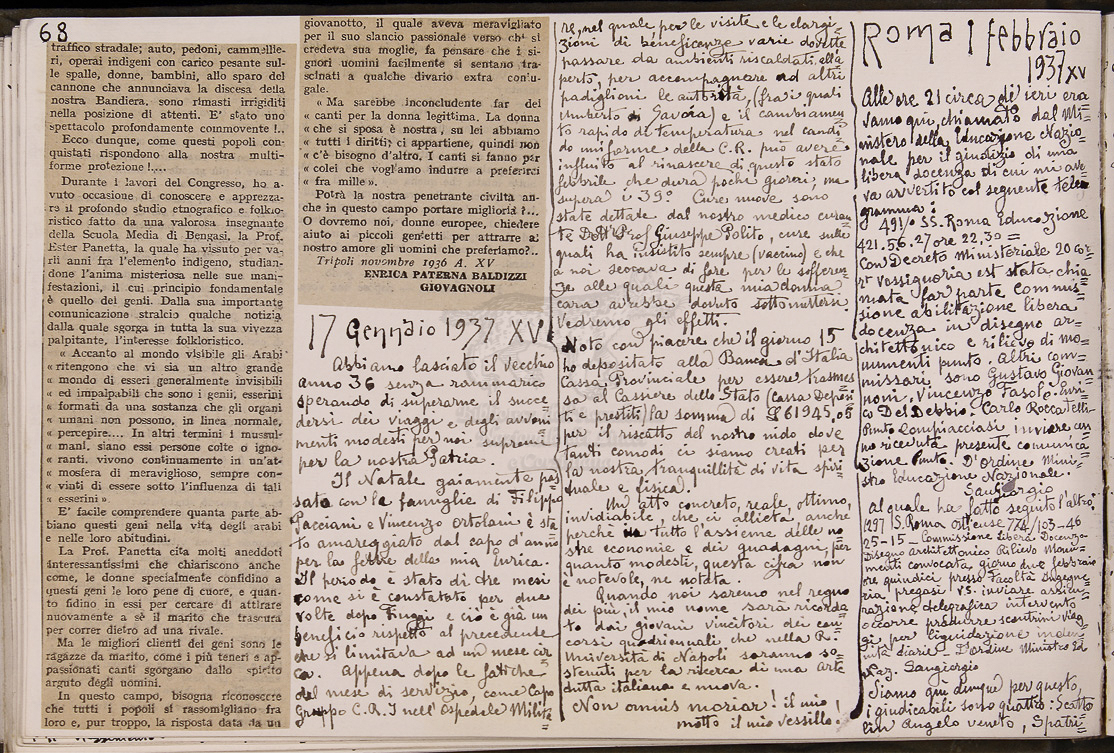 68
traffico stradale; auto, pedoni, cammellie-
ri, operai indigeni con carico pesante sul-
le spalle, donne, bambini, allo sparo del
cannone che annunciava la discesa della
nostra Bandiera, sono rimasti irrigiditi
nella posizione di attenti. E' stato uno
spettacolo profondamente commovente !..
Ecco dunque, come questi popoli con-
quistati rispondono alla nostra multi-
forme protezione !....
Durante i lavori del Congresso, ho a-
vuto occasione di conoscere e apprezza-
re il profondo studio etnografico e folklo-
ristico fatto da una valorosa insegnante
della Scuola Media di Bengasi, la Prof.
Ester Panetta, la quale ha vissuto per va-
rii anni fra l'elemento indigeno, studian-
done l'anima misteriosa nelle sue mani-
festazioni, il cui principio fondamentale
è quello dei geni. Dalla sua importante
comunicazione stralcio qualche notizia
dalla quale sgorga in tutta la sua vivezza
palpitante, l'interesse folkloristico.
« Accanto al mondo visibile gli Arabi
« ritengono che vi sia un altro grande
« mondo di esseri generalmente invisibili
« ed impalpabili che sono i genii, esserini
« formati da una sostanza che gli organi
« umani non possono, in linea normale,
« percepire.... In altri termini i musul-
« mani, siano essi persone colte o igno-
« ranti, vivono continuamente in un'at-
« mosfera di meraviglioso, sempre con-
« vinti di essere sotto l'influenza di tali
« esserini ».
E' facile comprendere quanta parte ab-
biano questi geni nella vita degli arabi
e nelle loro abitudini.
La Prof. Panetta cita molti aneddoti
interessantissimi che chiariscono anche
come, le donne specialmente confidino a
questi geni le loro pene di cuore, e quan-
to fidino in essi per cercare di attirare
nuovamente a sè il marito che trascura
per correr dietro ad una rivale.
Ma le migliori clienti dei geni sono le
ragazze da marito, come i più teneri e ap-
passionati canti sgorgano dallo spirito
arguto degli uomini.
In questo campo, bisogna riconoscere
che tutti i popoli si rassomigliano fra
loro e, pur troppo, la risposta data da un
giovanotto, il quale aveva meravigliato
per il suo slancio passionale verso chi si
credeva sua moglie, fa pensare che i si-
gnori uomini facilmente si sentano tra-
scinati a qualche divario extra coniu-
gale.
« Ma sarebbe inconcludente far dei
« canti per la donna legittima. La donna
« che si sposa è nostra, su lei abbiamo
« tutti i diritti; ci appartiene, quindi non
« c'è bisogno d'altro. I canti si fanno per
« colei che vogliamo indurre a preferirci
« fra mille ».
Potrà la nostra penetrante civiltà an-
che in questo campo portare migliorìa ?...
O dovremo noi, donne europee, chiedere
aiuto ai piccoli genietti per attrarre al
nostro amore gli uomini che preferiamo?..
Tripoli novembre 1936 A. XV
ENRICA PATERNA BALDIZZI
GIOVAGNOLI
17 Gennaio 1937 XV
Abbiamo lasciato il vecchio
anno 36 senza rammarico
sperando di superarne il succe
dersi dei viaggi e degli avveni
menti modesti per noi supremi
per la nostra Patria.
Il Natale gaiamente pas
sato con le famiglie di Filippo
Pacciani e Vincenzo Ortolani è sta
to amareggiato dal capo d'anno
per la febbre della mia Enrica.
Il periodo è stato di tre mesi
come si è constatato per due
volte dopo Fiuggi e ciò è già un
beneficio rispetto al precedente
che si limitava ad un mese cir
ca. Appena dopo le fatiche
del mese di servizio, come Capo
Gruppo C.R.I nell'Ospedale Milita=
re, nel quale per le visite e le elargi
zioni di beneficenze varie dovette
passare da ambienti riscaldati all'a
perto, per accompagnare ad altri
padiglioni le autorità, (fra i quali
Umberto di Savoia) e il cambiamen
to rapido di temperatura nel candi
do uniforme della C.R. può avere
influito al rinascere di questo stato
febbrile che dura pochi giorni, ma
supera i 39°. Cure nuove sono
state dettate dal nostro medico curan
te Dott. Prof Giuseppe Polito, cure sulle
quali ha insistito sempre (vaccino) e che
a noi seccava di fare per le sofferen
ze alle quali questa mia donnina
cara avrebbe dovuto sottomettersi
Vedremo gli effetti.
Noto con piacere che il giorno 15
ho depositato alla Banca d'Italia
Cassa Provinciale per essere trasmes
sa al Cassiere dello Stato (Cassa Deposi
ti e prestiti) la somma di £ 61945,05
per il riscatto del nostro nido dove
tanti comodi ci siamo creati per
la nostra tranquillità di vita spiri
tuale e fisica.
Un atto concreto, reale, ottimo,
invidiabile, che ci allieta, anche
perchè tutto l'assieme delle no
stre economie e dei guadagni, per
quanto modesti, questa cifra non
è notevole, ne notata.
Quando noi saremo nel regno
dei più, il mio nome sarà ricorda
to dai giovani vincitori dei con
corsi quadriennali che nella R.
Università di Napoli saranno so=
stenuti per la ricerca di una Arte
dritta italiana e nuova.
Non omnis moriar! il mio
motto il mio vessillo!
Roma 1 febbraio
1937 XV
Alle ore 21 circa di ieri era
vamo qui, chiamato dal Mi=
nistero della Educazione Nazio
nale per il giudizio di una
libera docenza di cui mi ave
va avvertito col seguente tele=
gramma:
491/0 SS. Roma Educazione
421.56.27/ ore 22,30=
Con Decreto Ministeriale 20 cor
r. vossignoria est stata chia
mata far parte commis=
sione abilitazione libera
docenza in disegno ar=
chitettonico e rilievo di mo=
numenti punto. Altri com=
missari sono Gustavo Giovan
noni, Vincenzo Fasolo. Enri
co Del Debbio. Carlo Roccatelli
Punto Compiacciasi inviare an
no ricevuta presente comunica
zione Punto. D'Ordine Mini=
stro Educazione Nazionale.
Sangiorgio
al quale ha fatto seguito l'altro:
1297/S. Roma Ostiense 774/103-46
25-15-Commissione Libera Docenza
Disegno Architettonico Rilievo Monu=
menti convocata giorno due febbraio
ore quindici presso Facoltà Ingegne
ria, pregasi V.S. inviare assicu=
razione telegrafica intervento
occorre produrre scontrini viag
gi per liquidazione inden=
nità diarie-D'ordine Ministro Ed
Naz. Sangiorgio
Siamo qui dunque per questo,
i giudicabili sono quattro: Scatto
lin Angelo veneto, Spatri=